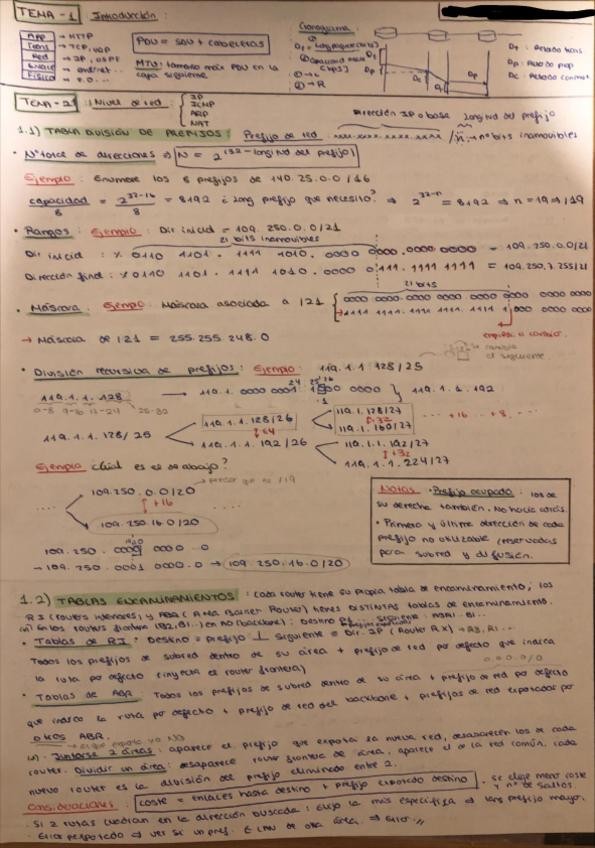 TEMA-1 Introducción:
App → HTTP
Trans → TCP, UDP
Red → IP, OSPF
Enlace → ethernet...
Físico → F.O...
PDU = SDU + cabeceras
MTU: tamaño máx PDU en la
capa siguiente
Cronograma:
Dt: Retardo trans
Dp: Retardo prop
Dc: Retardo conmut.
TEMA-2: Nivel de red:
IP
ICMP
ARP
NAT
1.1) TABLA DIVISIÓN DE PREFIJOS: Prefijo de red: xxx.xxx.xxx.xxxx /n → nº bits inamovibles
Dirección IP o base longitud del prefijo
• Nº total de direcciones ⇒ N = 2^(32-longitud del prefijo)
Ejemplo: Enumere los 8 prefijos de 140.25.0.0/16
capacidad/8 = 2^(32-16)/8 = 8192 ¿long prefijo que necesito? ⇒ 2^(32-n) = 8192 ⇒ n=19 ⇒ /19
• Rangos: Ejemplo: Dir inicial = 109.250.0.0/21
21 bits inamovibles
Dir inicial: % 0110 1101. 1111 1010. 0000 0000.0000 0000 = 109.250.0.0/21
Dirección final: % 0110 1101. 1111 1010. 0000 0111. 1111 1111 = 109.250.7.255/21
21 bits
• Máscara: Ejemplo: Máscara asociada a /21
0000 0000. 0000 0000. 0000 0000 0000 0000
1111 1111. 1111 1111. 1111 1 000 0000 0000
→ Máscara de /21 = 255.255.248.0
empieza a cambiar.
se cambia
el siguiente
• División recursiva de prefijos: Ejemplo: 119.1.1.128/25
119.1.1.128 → 119.1.0000 0001. 1000 0000 } 119.1.1.192
0-8 9-16 17-24 25-32
119.1.1.128/25
119.1.1.128/26
+64
119.1.1.192/26
119.1.1.128/27
+32
119.1.1.160/27
... +16 ... +8 ...
119.1.1.192/27
+32
119.1.1.224/27
Ejemplo ¿Cuál es el de abajo?
109.250.0.0/20 → parecer que no /19
+16
109.250.16.0/20
109.250.0000 0000.0
→ 109.250.0001 0000.0 → 109.250.16.0/20
Notas • Prefijo ocupado: los de
su derecha también. No hacia atrás.
• Primera y última dirección de cada
prefijo no utilizable (reservadas
para subred y difusión.
1.2) TABLAS ENCAMINAMIENTOS: cada router tiene su propia tabla de encaminamiento; los
RI (routers internos) y ABR (Area Border Router) tienen distintas tablas de encaminamiento.
• Tablas de RI: Destino = prefijo ⊥ Siguiente = Dir. IP (Router RX) → R3, R1...
Todos los prefijos de subred dentro de su área + prefijo de red por defecto que indica
la ruta por defecto (inyecta el router frontera)
0.0.0.0/0
• Tablas de ABR: Todos los prefijos de subred dentro de su área + prefijo de red por defecto
que indica la ruta por defecto + prefijos de red del backbone + prefijos de red exportados por
otros ABR.
→ el que exporta yo NO
• Juntarse 2 áreas: aparece el prefijo que exporta la nueva red, desaparecen los de cada
router. Dividir un área: desaparece router frontera de área, aparece el de la red común, cada
nuevo router es la división del prefijo eliminado entre 2.
Consideraciones: coste = enlaces hasta destino + prefijo exportado destino
• Se elige menor coste
y nº de saltos.
• Si 2 rutas cuadran en la dirección buscada: Elijo la más específica ⇒ long prefijo mayor.